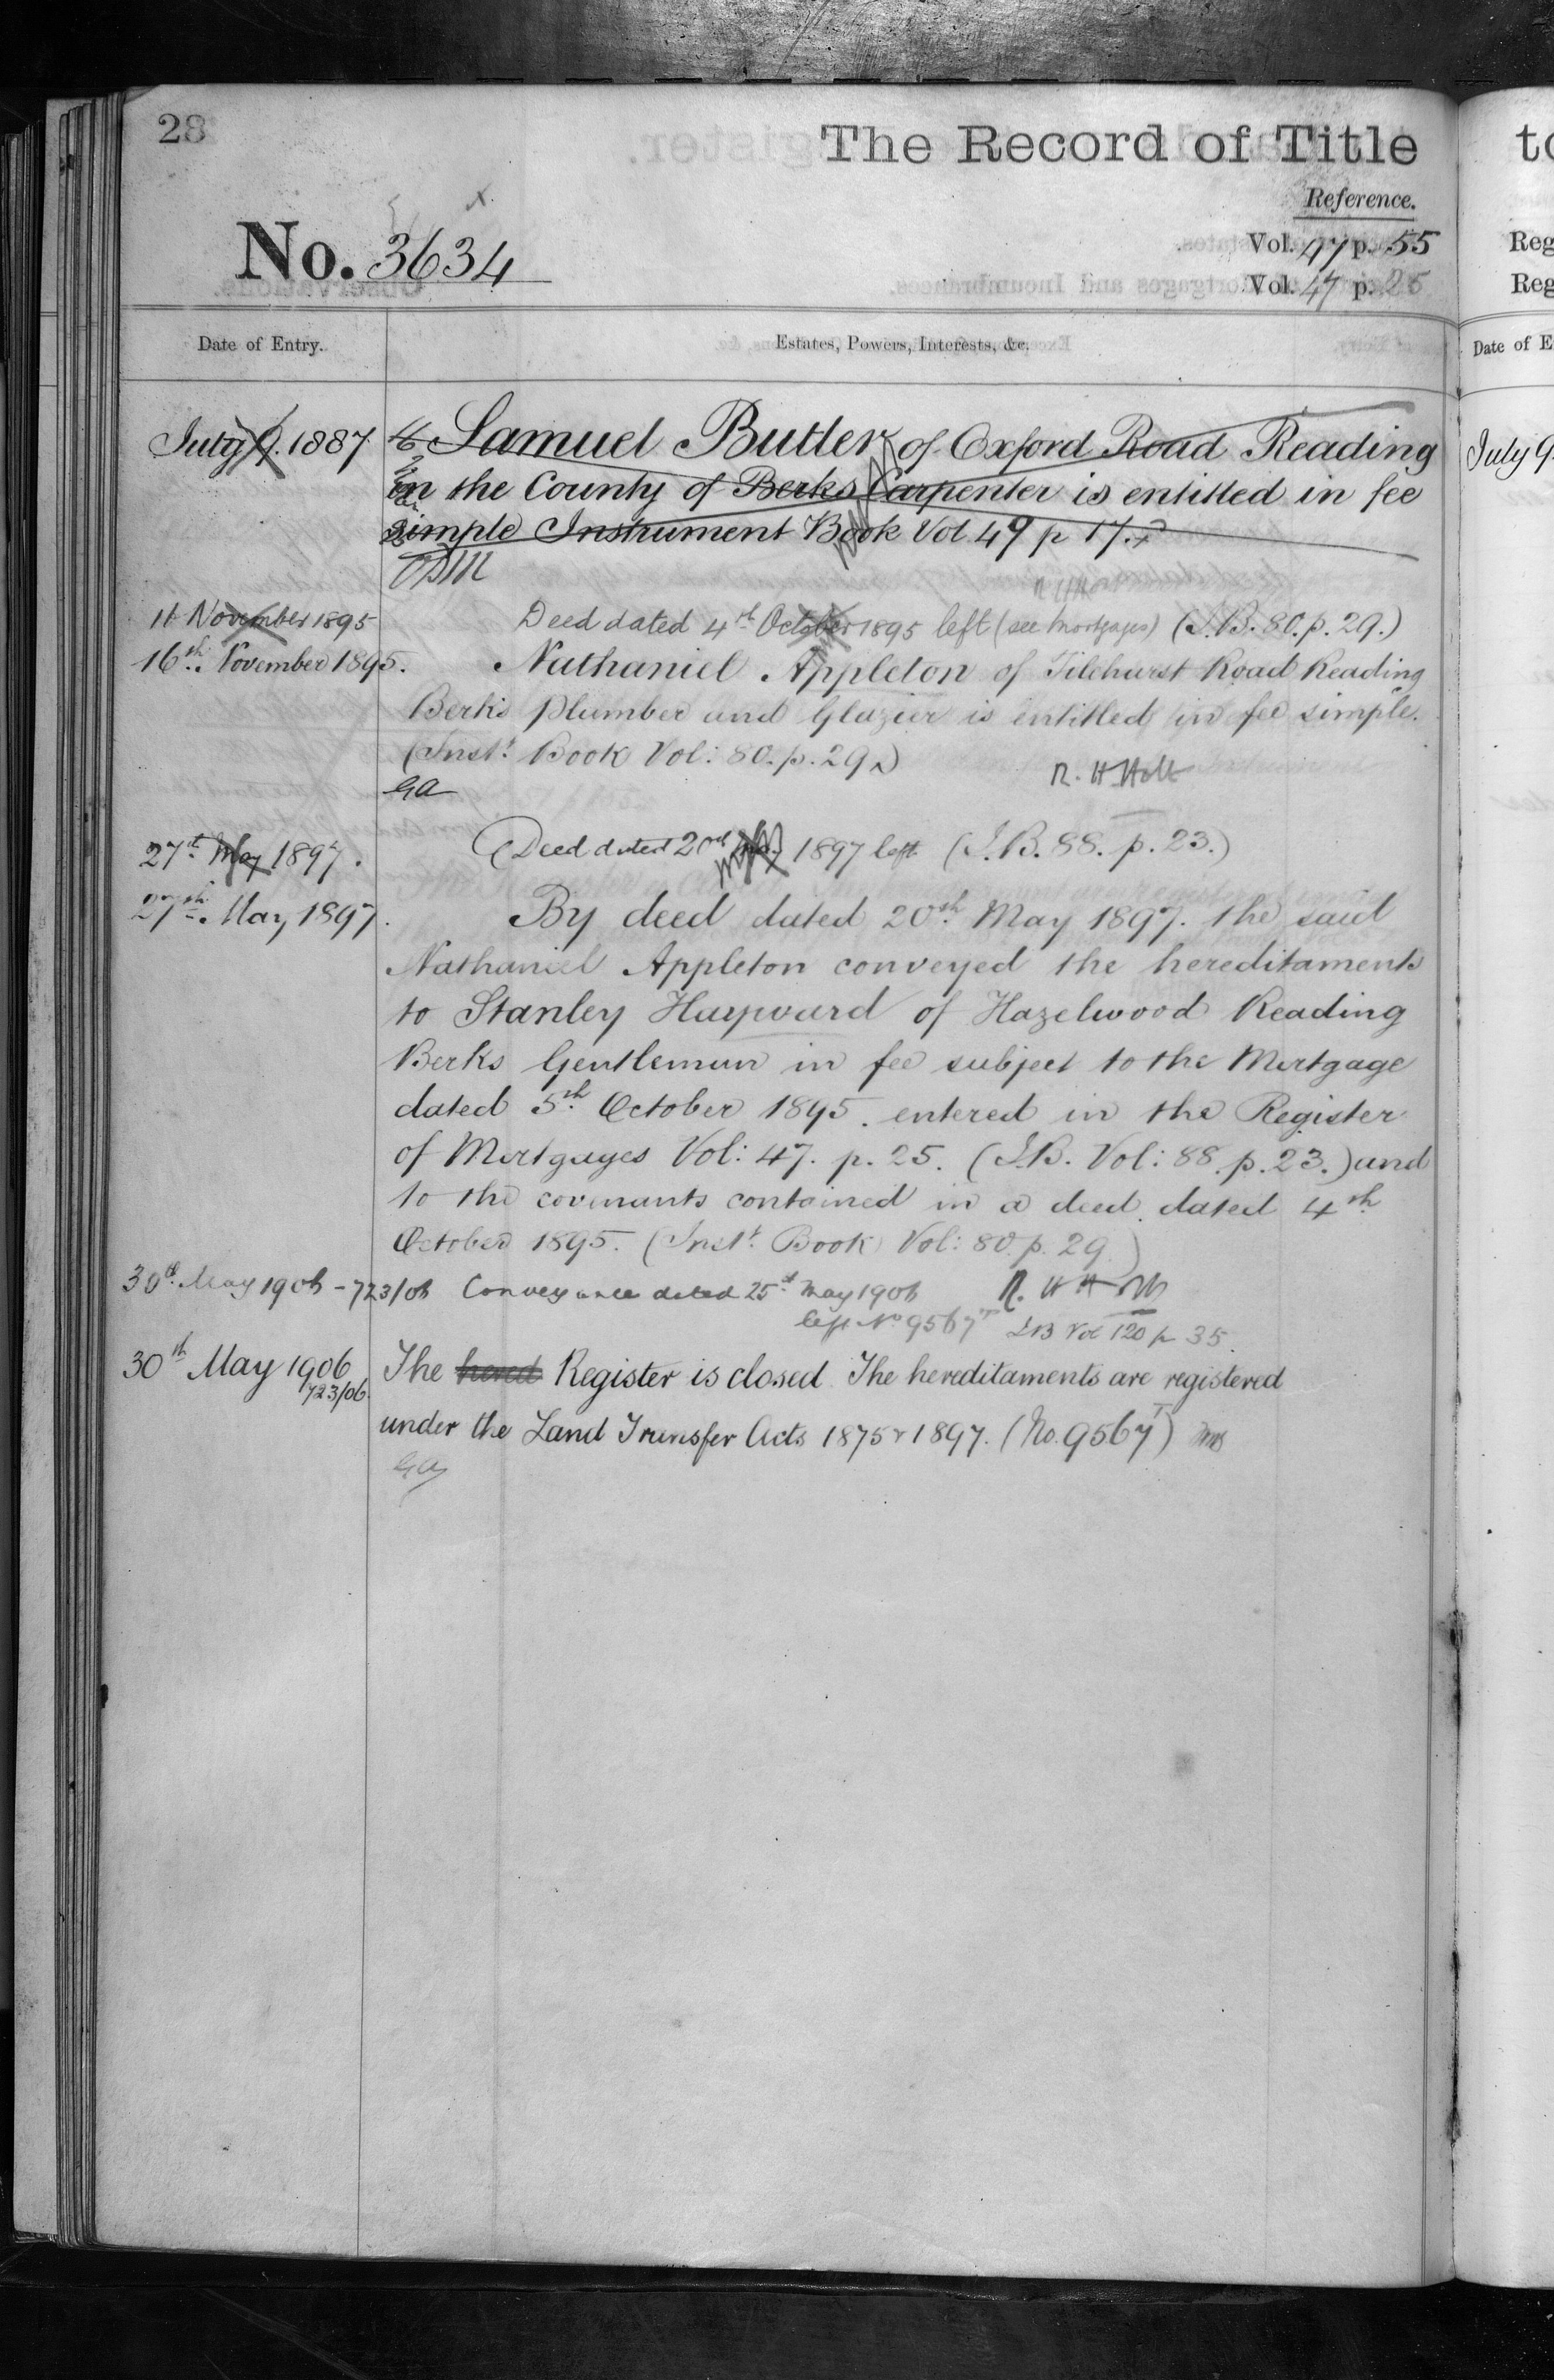 28
The Record of Title
Reference.
No. 3634
Vol. 47 p. 55
Vol. 47 p. 25
Date of Entry.
Estates, Powers, Interests, &c.
July 9. 1887
Samuel Butler of Oxford Road Reading
in the County of Berks Carpenter is entitled in fee
simple Instrument Book Vol 49 p 17.
11 November 1895
Deed dated 4th October 1895 left (see Mortgages) (I.B. 80. p. 29.)
16th November 1895.
Nathaniel Appleton of Tilehurst Road Reading
Berks Plumber and Glazier is entitled in fee simple.
(Inst. Book Vol: 80. p. 29.)
R. H Holt
GA
27th May 1897.
(Deed dated 20th May 1897 left (I.B. 88. p. 23.)
27th May 1897.
By deed dated 20th May 1897. the said
Nathaniel Appleton conveyed the hereditaments
to Stanley Hayward of Hazelwood Reading
Berks Gentleman in fee subject to the Mortgage
dated 5th October 1895. entered in the Register
of Mortgages Vol: 47. p. 25. (I.B. Vol: 88. p. 23.) and
to the covenants contained in a deed dated 4th
October 1895. (Inst. Book Vol: 80. p. 29.)
30th May 1906 - 723/06 Conveyance dated 25th May 1906
left No 9567T I.B Vol 120 p 35.
30th May 1906
723/06.
The hered Register is closed. The hereditaments are registered
under the Land Transfer Acts 1875 & 1897. (No. 9567T)
GA
to
Reg
Reg
Date of E
July 9